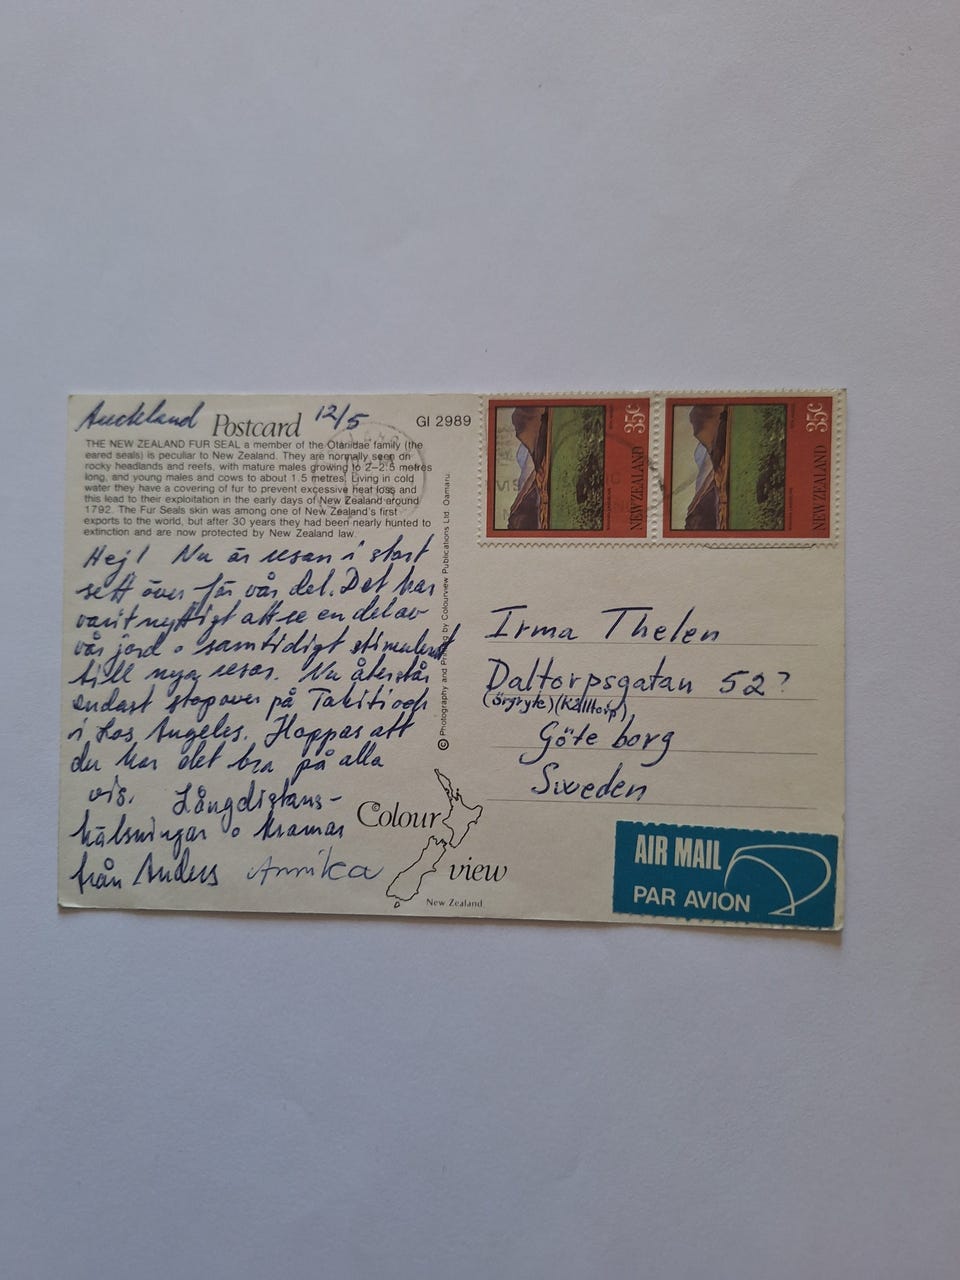 Auckland 12/5
Postcard
GI 2989
THE NEW ZEALAND FUR SEAL a member of the Otariidae family (the
eared seals) is peculiar to New Zealand. They are normally seen on
rocky headlands and reefs, with mature males growing to 2–2.5 metres
long, and young males and cows to about 1.5 metres. Living in cold
water they have a covering of fur to prevent excessive heat loss and
this lead to their exploitation in the early days of New Zealand around
1792. The Fur Seals skin was among one of New Zealand's first
exports to the world, but after 30 years they had been nearly hunted to
extinction and are now protected by New Zealand law.
Hej! Nu är resan i stort
sett över för vår del. Det har
varit nyttigt att se en del av
vår jord o samtidigt stimulerat
till nya resor. Nu återstår
endast stopover på Tahiti och
i Los Angeles. Hoppas att
du har det bra på alla
vis. Långdistans-
hälsningar o kramar
från Anders Annika
© Photography and Printing by Colourview Publications Ltd. Oamaru.
©Colour
view
New Zealand
35c
NEW ZEALAND
35c
NEW ZEALAND
Irma Thelen
Daltorpsgatan 52?
(Örgryte) (Kålltorp)
Göteborg
Sweden
AIR MAIL
PAR AVION